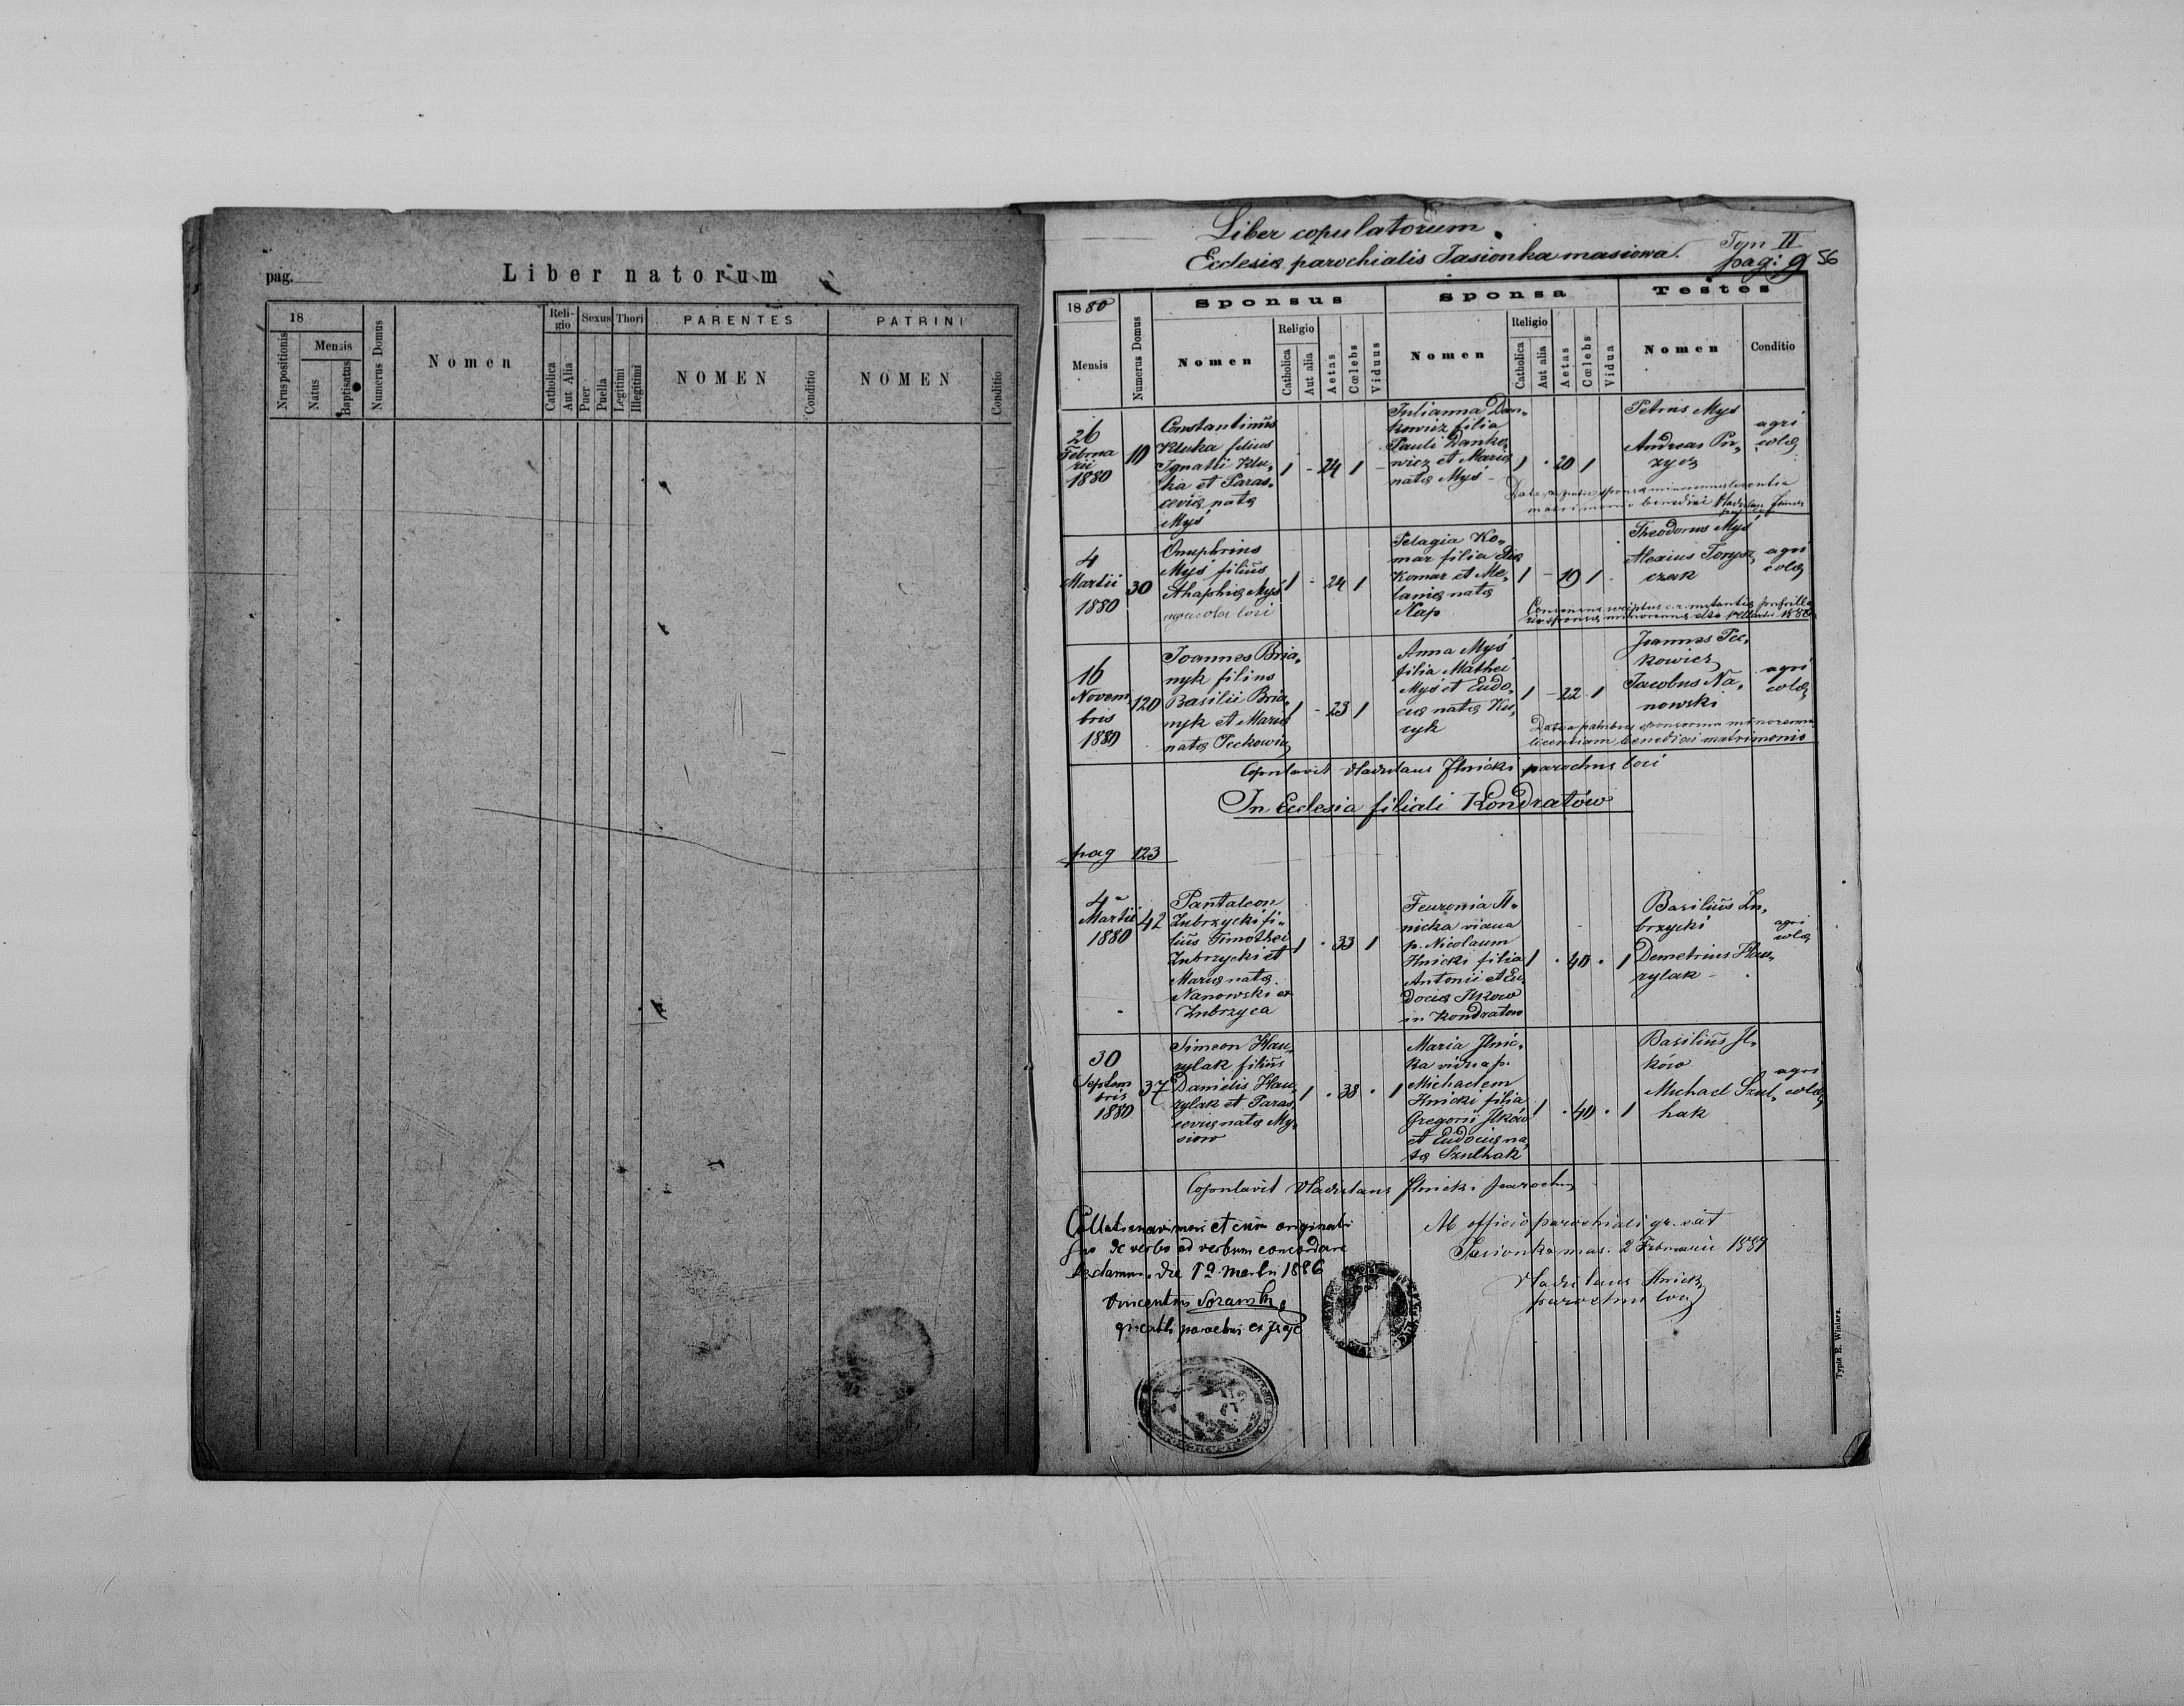 pag.
Liber natorum
18
Nrus positionis
Mensis
Natus
Baptisatus
Numerus Domus
Nomen
Reli-
gio
Catholica
Aut Alia
Sexus
Puer
Puella
Thori
Legitimi
Illegitimi
PARENTES
NOMEN
Conditio
PATRINI
NOMEN
Conditio
Liber copulatorum.
Ecclesiæ parochialis Jasionka masiowa.
Tom II
pag: 9
56
1880
Mensis
Numerus Domus
Sponsus
Nomen
Religio
Catholica
Aut alia
Aetas
Cœlebs
Viduus
Sponsa
Nomen
Religio
Catholica
Aut alia
Aetas
Cœlebs
Vidua
Testes
Nomen
Conditio
26
Februa
rii
1880
10
Constantinus
Kluka filius
Ignatii Klu,
ka et Paras,
ceviæ natæ
Myś
1 - 24 1 -
Julianna Dan,
kowicz filia
Pauli Danko,
wicz et Mariæ
natæ Myś
1 . 20 1
Petrus Myś
Andreas Pu,
zycz
agri
colæ
matrimonio benedixi
4
Martii
1880
30
Onuphrius
Myś filius
Ahaphiæ Myś
agricola loci
1 - 24 1
Pelagia Ko,
mar filia
Komar et Me,
laniæ natæ
Nap
1 - 19 1 .
Theodorus Myś
Alexius Torysz,
czak
agri
colæ
16
Novem
bris
1880
120
Joannes Bria,
nyk filius
Basilii Bria,
nyk et Mariæ
natæ Peckowicz
1 - 23 1
Anna Myś
filia Mathei
Myś et Eudo,
ciæ natæ Ku,
cyk
1 - 22 1
Joannes Pec,
kowicz
Jacobus Na,
nowski
agri
colæ
licentiam benedixi matrimonio
Copulavit Vladislaus Ilnicki parochus loci
In Ecclesia filiali Kondratów
pag 123
4
Martii
1880
42
Pantaleon
Zubrzycki fi-
lius Timothei
Zubrzycki et
Mariæ natæ
Nanowski ex
Zubrzyca
1 . 33 1
Feuronia Il-
nicka vidua
p. Nicolaum
Ilnicki filia
Antonii et Eu,
dociæ Ilkow
in Kondratow
1 . 40 . 1
Basilius Zu,
brzycki
Demetrius Hau,
rylak
agri
colæ
30
Septem
bris
1880
37
Simeon Hau,
rylak filius
Danielis Hau,
rylak et Paras,
ceviæ natæ My,
siow
1 . 38 . 1
Maria Ilnic,
ka vidua p.
Michaelem
Ilnicki filia
Gregorii Ilków
et Eudociæ na,
tæ Szulhak
1 . 40 . 1
Basilius Il,
ków
Michael Szul,
hak
agri
colæ
Copulavit Vladislaus Ilnicki parochus
et cum originali
de verbo ad verbum concordare
1a Martii 1886
Vincentius
Ab officio parochiali gr. cat
Jasionka mas. 2 Februarii 1881
Vladislaus Ilnicki
parochus loci
Typis E. Winiarz.